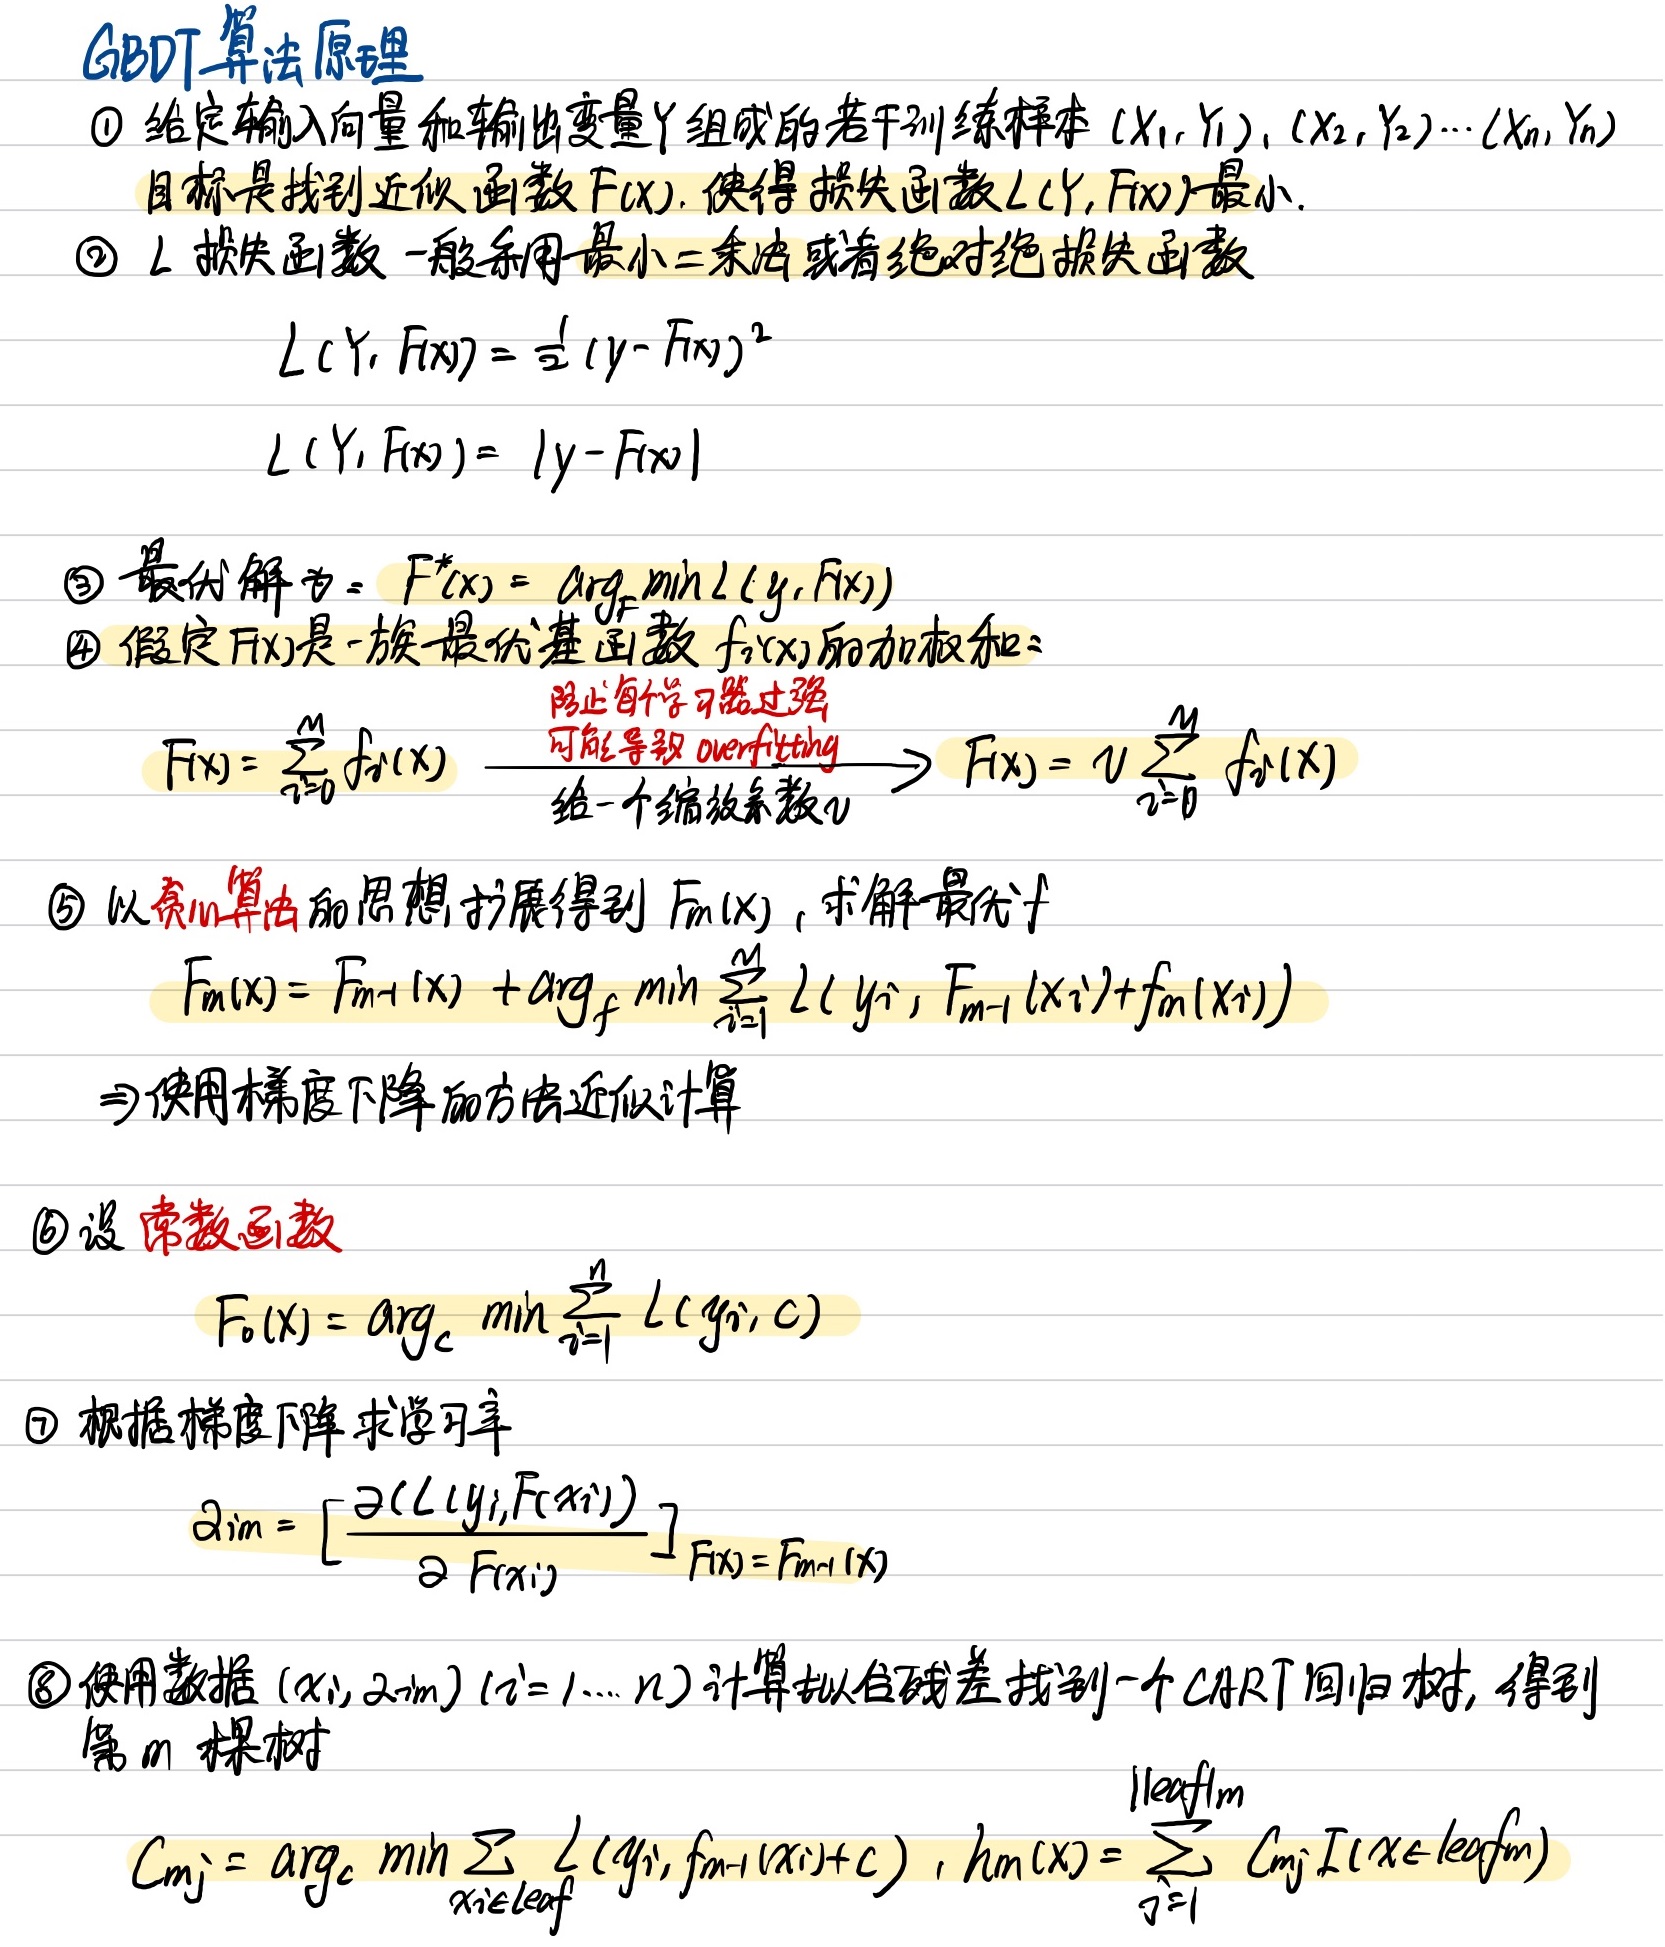 GBDT算法原理
① 给定输入向量和输出变量Y组成的若干训练样本 (X₁, Y₁), (X₂, Y₂)…(Xn, Yn)
目标是找到近似函数F(X), 使得损失函数L(Y, F(X))最小.
② L 损失函数一般采用最小二乘法或者绝对绝损失函数
L(Y, F(X)) = 1/2 (y - F(x))²
L(Y, F(x)) = |y - F(x)|
③ 最优解为: F*(x) = arg_F min L(y, F(x))
④ 假定F(x)是一族最优基函数 fi(x)的加权和:
防止每个学习器过强
可能导致 overfitting
F(x) = ∑_{i=0}^{M} fi(X) ⟶ F(x) = ν ∑_{i=0}^{M} fi(X)
给一个缩放系数ν
⑤ 以贪心算法的思想扩展得到 Fm(X), 求解最优f
Fm(x) = Fm-1(X) + arg_f min ∑_{i=1}^{M} L(yi, Fm-1(Xi)+fm(Xi))
⇒使用梯度下降的方法近似计算
⑥ 设 常数函数
F₀(X) = arg_c min ∑_{i=1}^{n} L(yi, C)
⑦ 根据梯度下降求学习率
∂im = [∂(L(yi, F(xi)) / ∂F(xi)]_{F(x)=Fm-1(x)}
⑧ 使用数据 (xi, ∂im) (i=1....n) 计算拟合残差找到一个CART回归树, 得到
第 m 棵树
Cmj = arg_c min ∑_{xi∈leaf} L(yi, fm-1(xi)+c), hm(x) = ∑_{j=1}^{|leaf|m} Cmj I(x∈leafm)